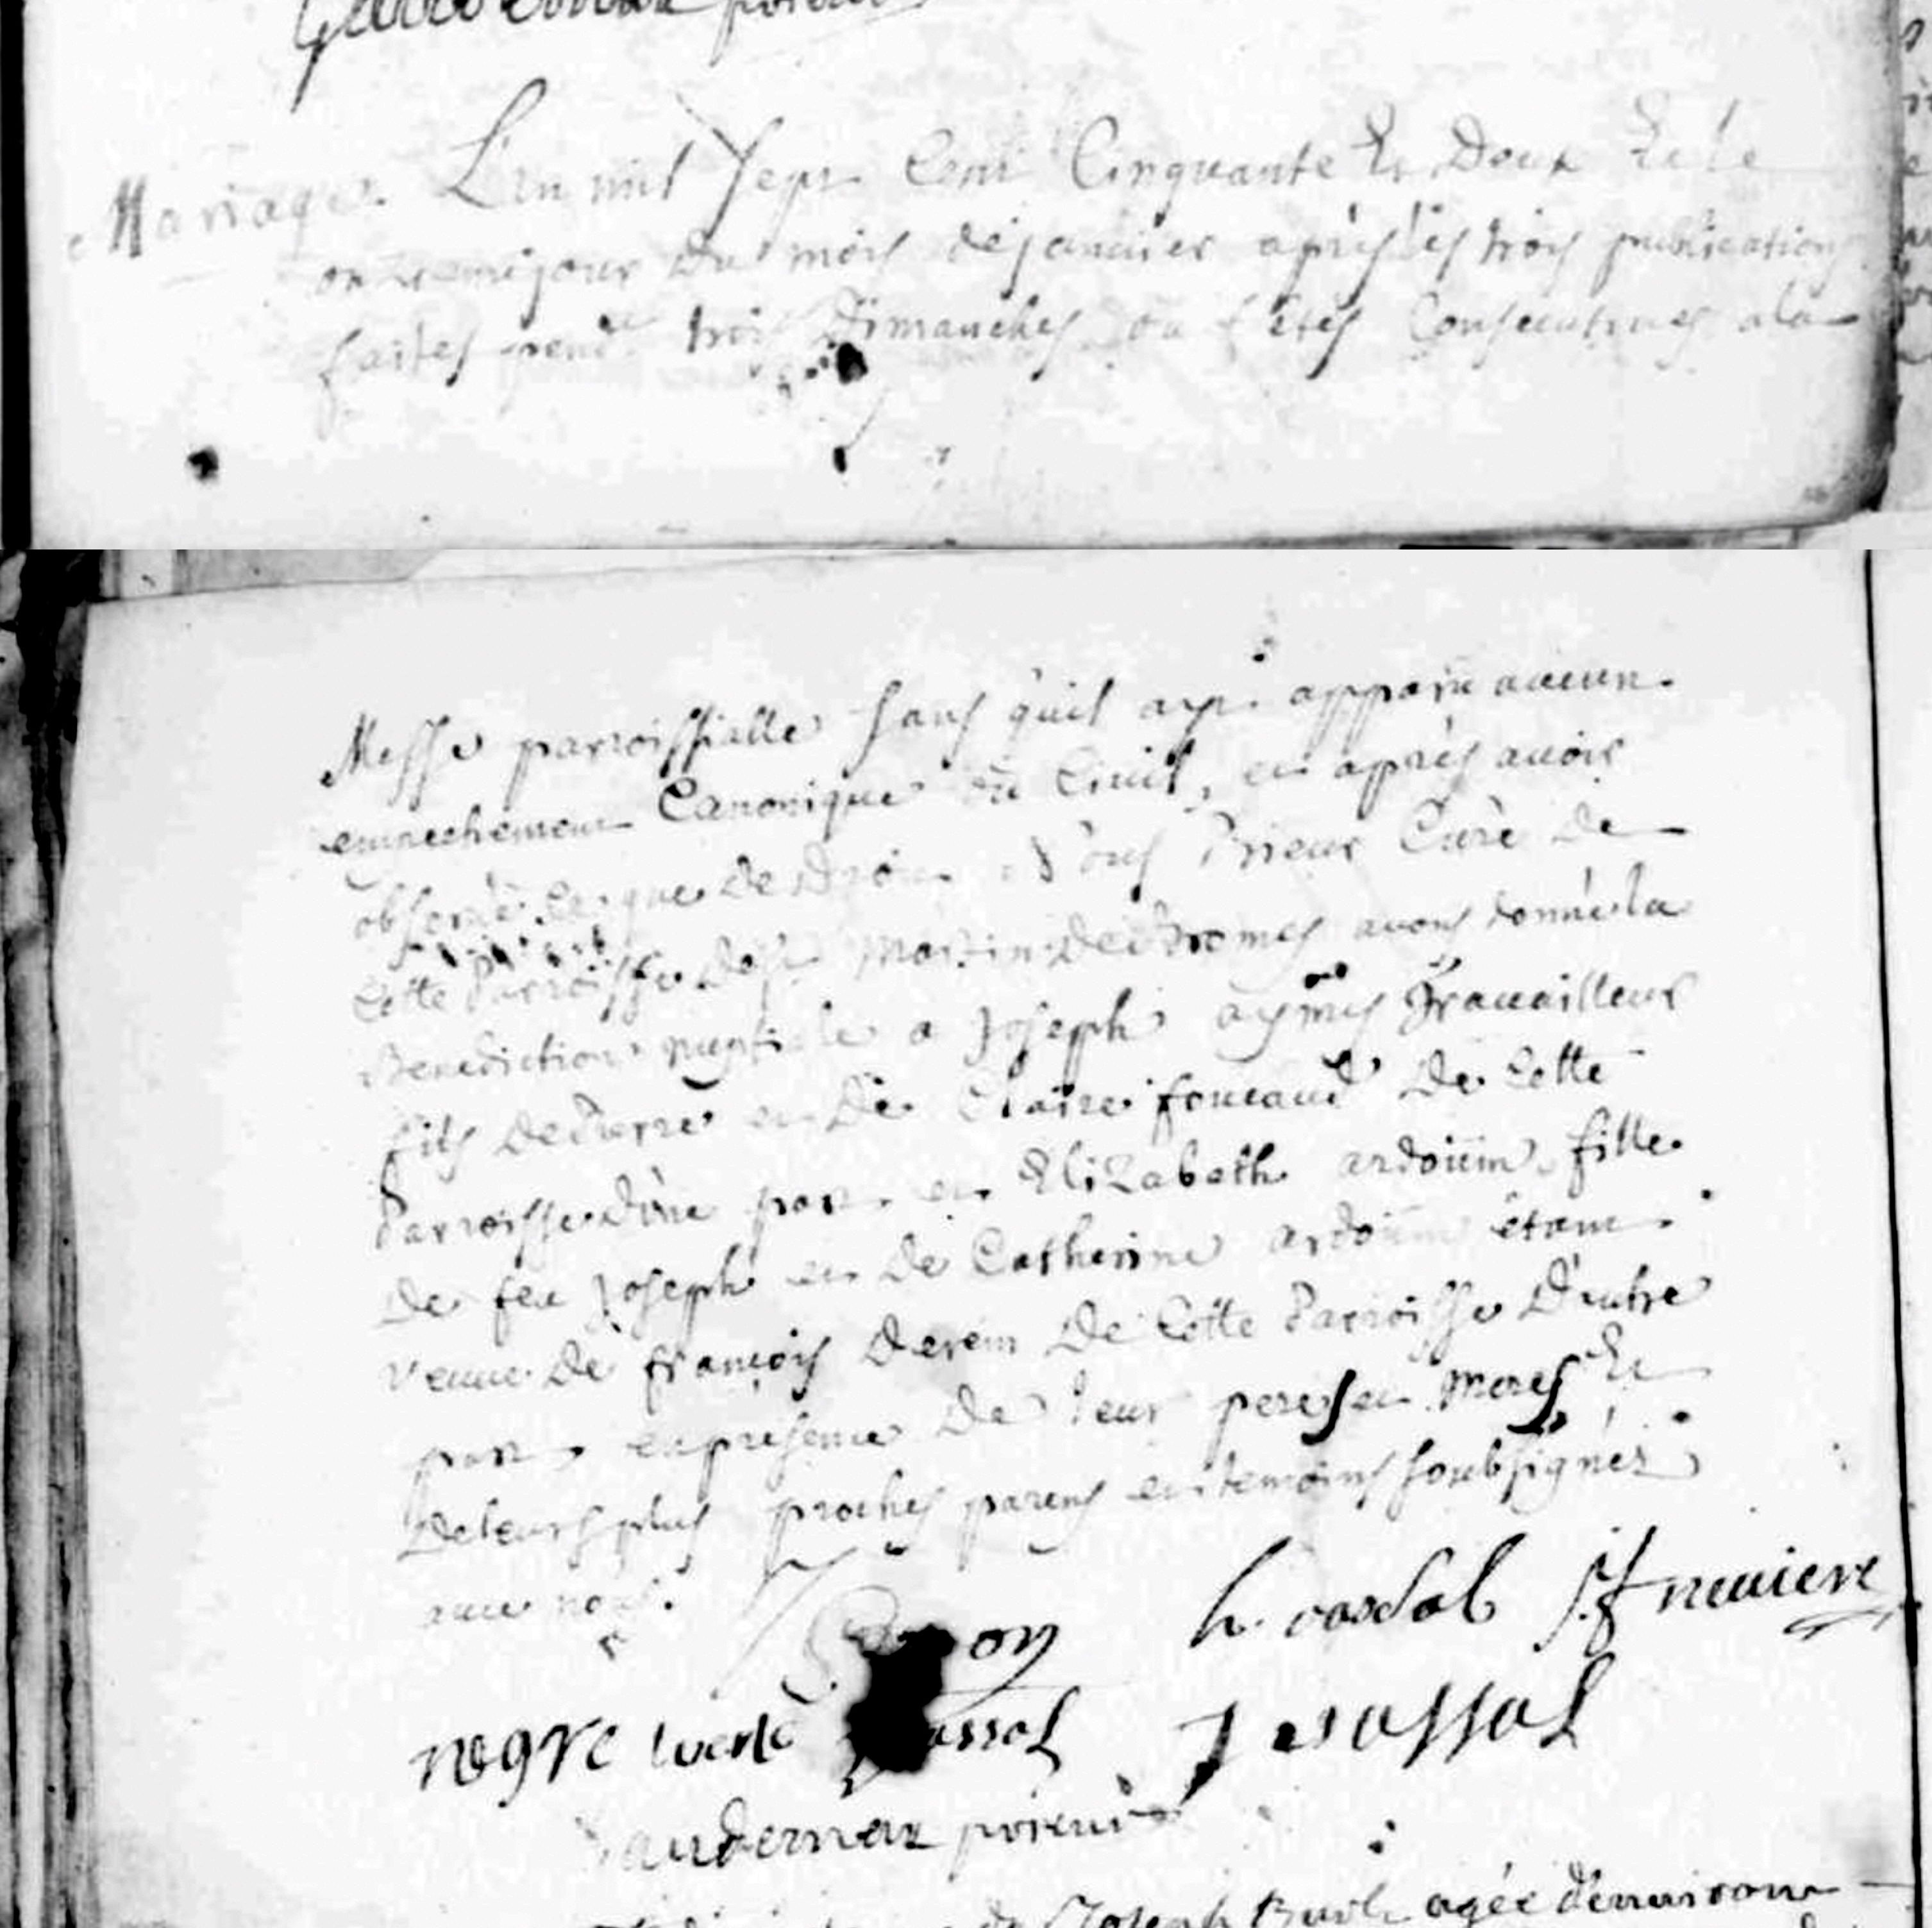 prieur
Mariage. L'an mil sept cent Cinquante Et Deux Et le
onzieme jour Du mois de janvier après les trois publications
faites pend.t trois Dimanches ou fêtes Consecutives a la
Messe parroissialle sans qu'il aye apparu aucun
empechement Canonique ou Civil, et après avoir
observé ce que de Droit Nous Prieur Curé de
Cette Parroisse de St Martin de Bromes avons donné la
Benediction nuptiale a Joseph aymes Travailleur
fils de Pierre et De Claire foucaud De Cette
Parroisse d'une part et Elizabeth ardoüin fille
De feu Joseph et De Catherine ardoüin étant
veuve De françois Deren De Cette Parroisse D'autre
part, en presence De leur peres et meres Et
De leurs plus proches parens et temoins soubsignés
avec nous.
h. J
negre
J
prieur
de Joseph agée d'environ